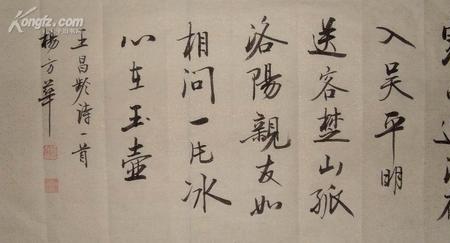 Kongfz.com
入吴平明
送客楚山孤
洛陽親友如
相問一片冰
心在玉壺
王昌齡诗一首
楊方華